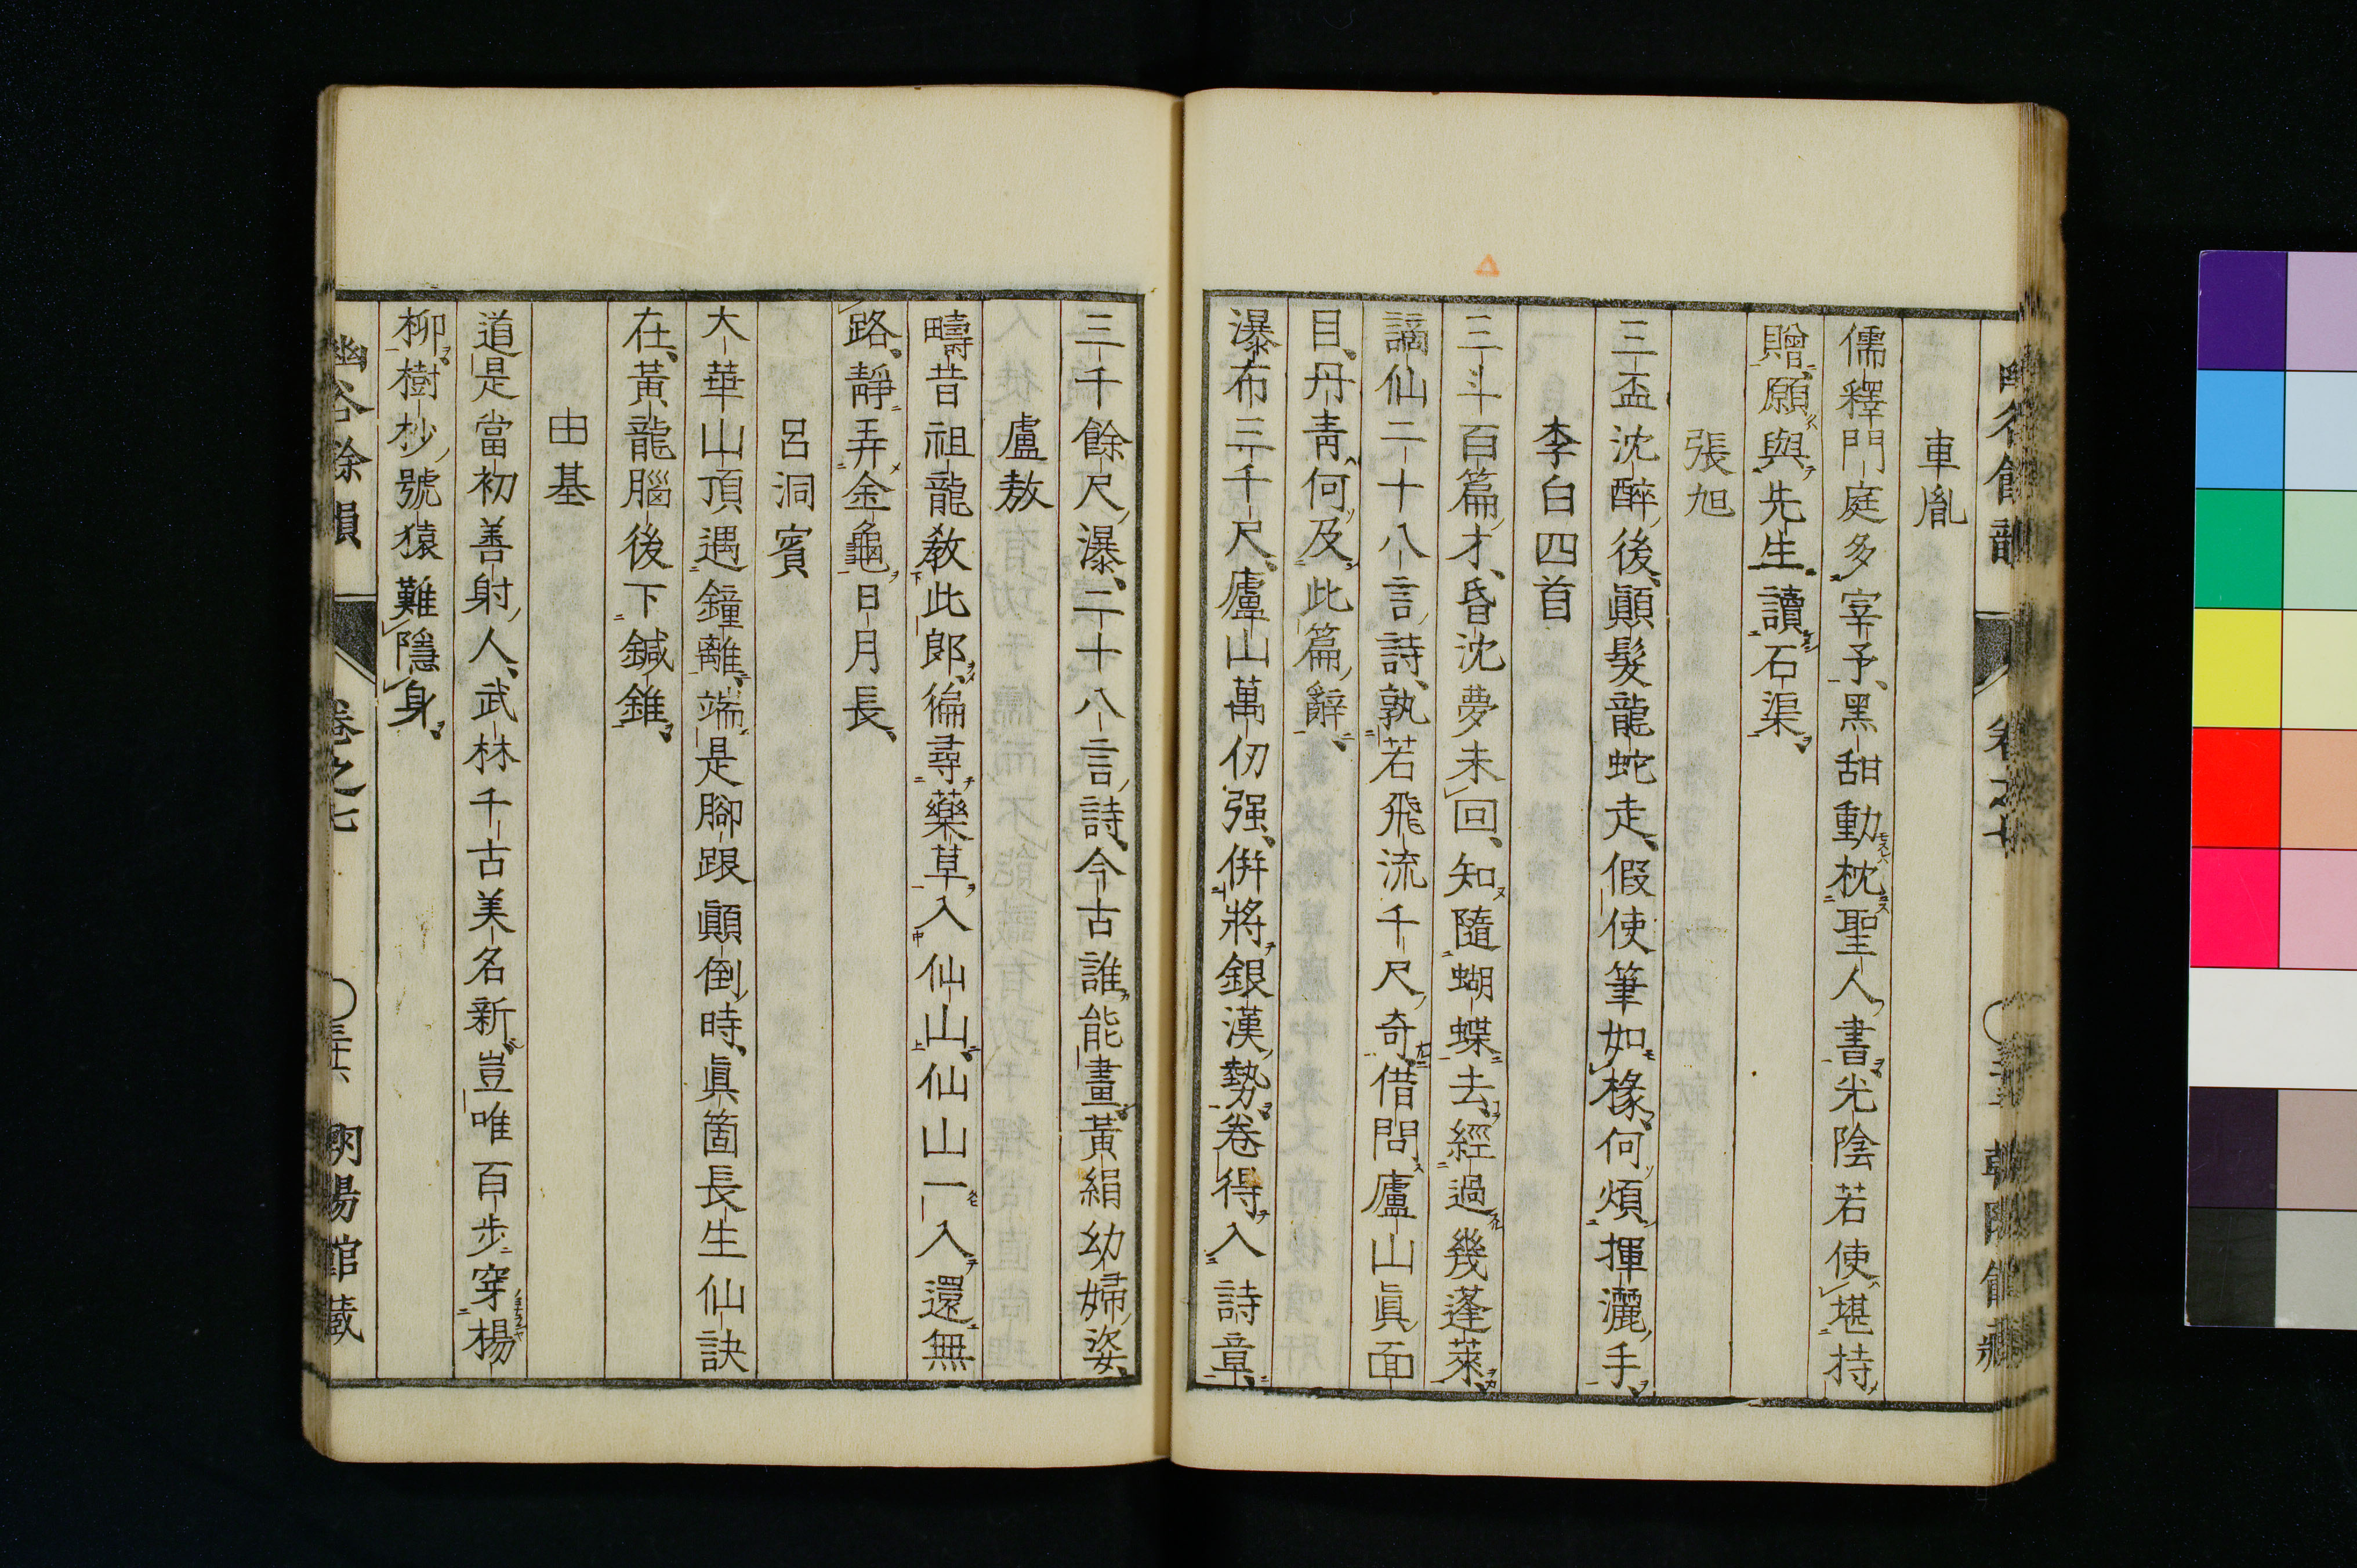 車胤
儒釋門庭多宰予黑甜動枕聖人書光陰若使堪持
贈願與先生讀石渠
張旭
三盃沈醉後顚髮龍蛇走假使筆如椽何煩揮灑手
李白四首
三斗百篇才昏沈夢未回知隨蝴蝶去經過幾蓬萊
謫仙二十八言詩孰若飛流千尺奇借問廬山眞面
目丹靑何及此篇辭
瀑布三千尺廬山萬仞强倂將銀漢勢卷得入詩章
三千餘尺瀑二十八言詩今古誰能畫黃絹幼婦姿
盧敖
疇昔祖龍敎此郎徧尋藥草入仙山仙山一入還無
路靜弄金龜日月長
呂洞賓
大華山頂遇鐘離端是腳跟顚倒時眞箇長生仙訣
在黃龍腦後下鍼錐
由基
道是當初善射人武林千古美名新豈唯百步穿楊
柳樹杪號猿難隱身
幽谷餘韻 卷之七 〇三十六 朝陽館藏